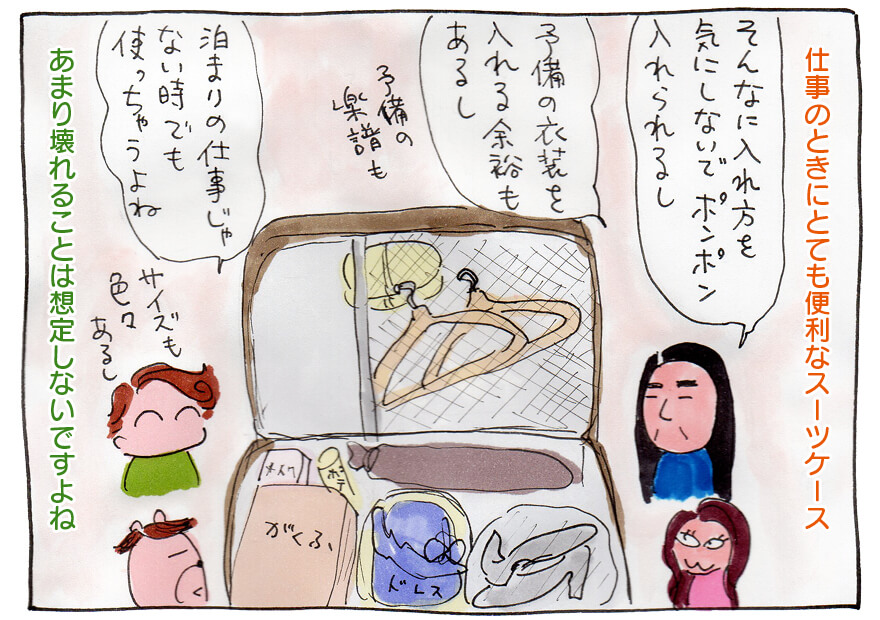 仕事のときにとても便利なスーツケース
そんなに入れ方を
気にしないでポンポン
入れられるし
予備の衣装を
入れる余裕も
あるし
予備の
楽譜も
泊まりの仕事じゃ
ない時でも
使っちゃうよね
サイズも
色々
あるし
メイク
がくふ
ドレス
あまり壊れることは想定しないですよね